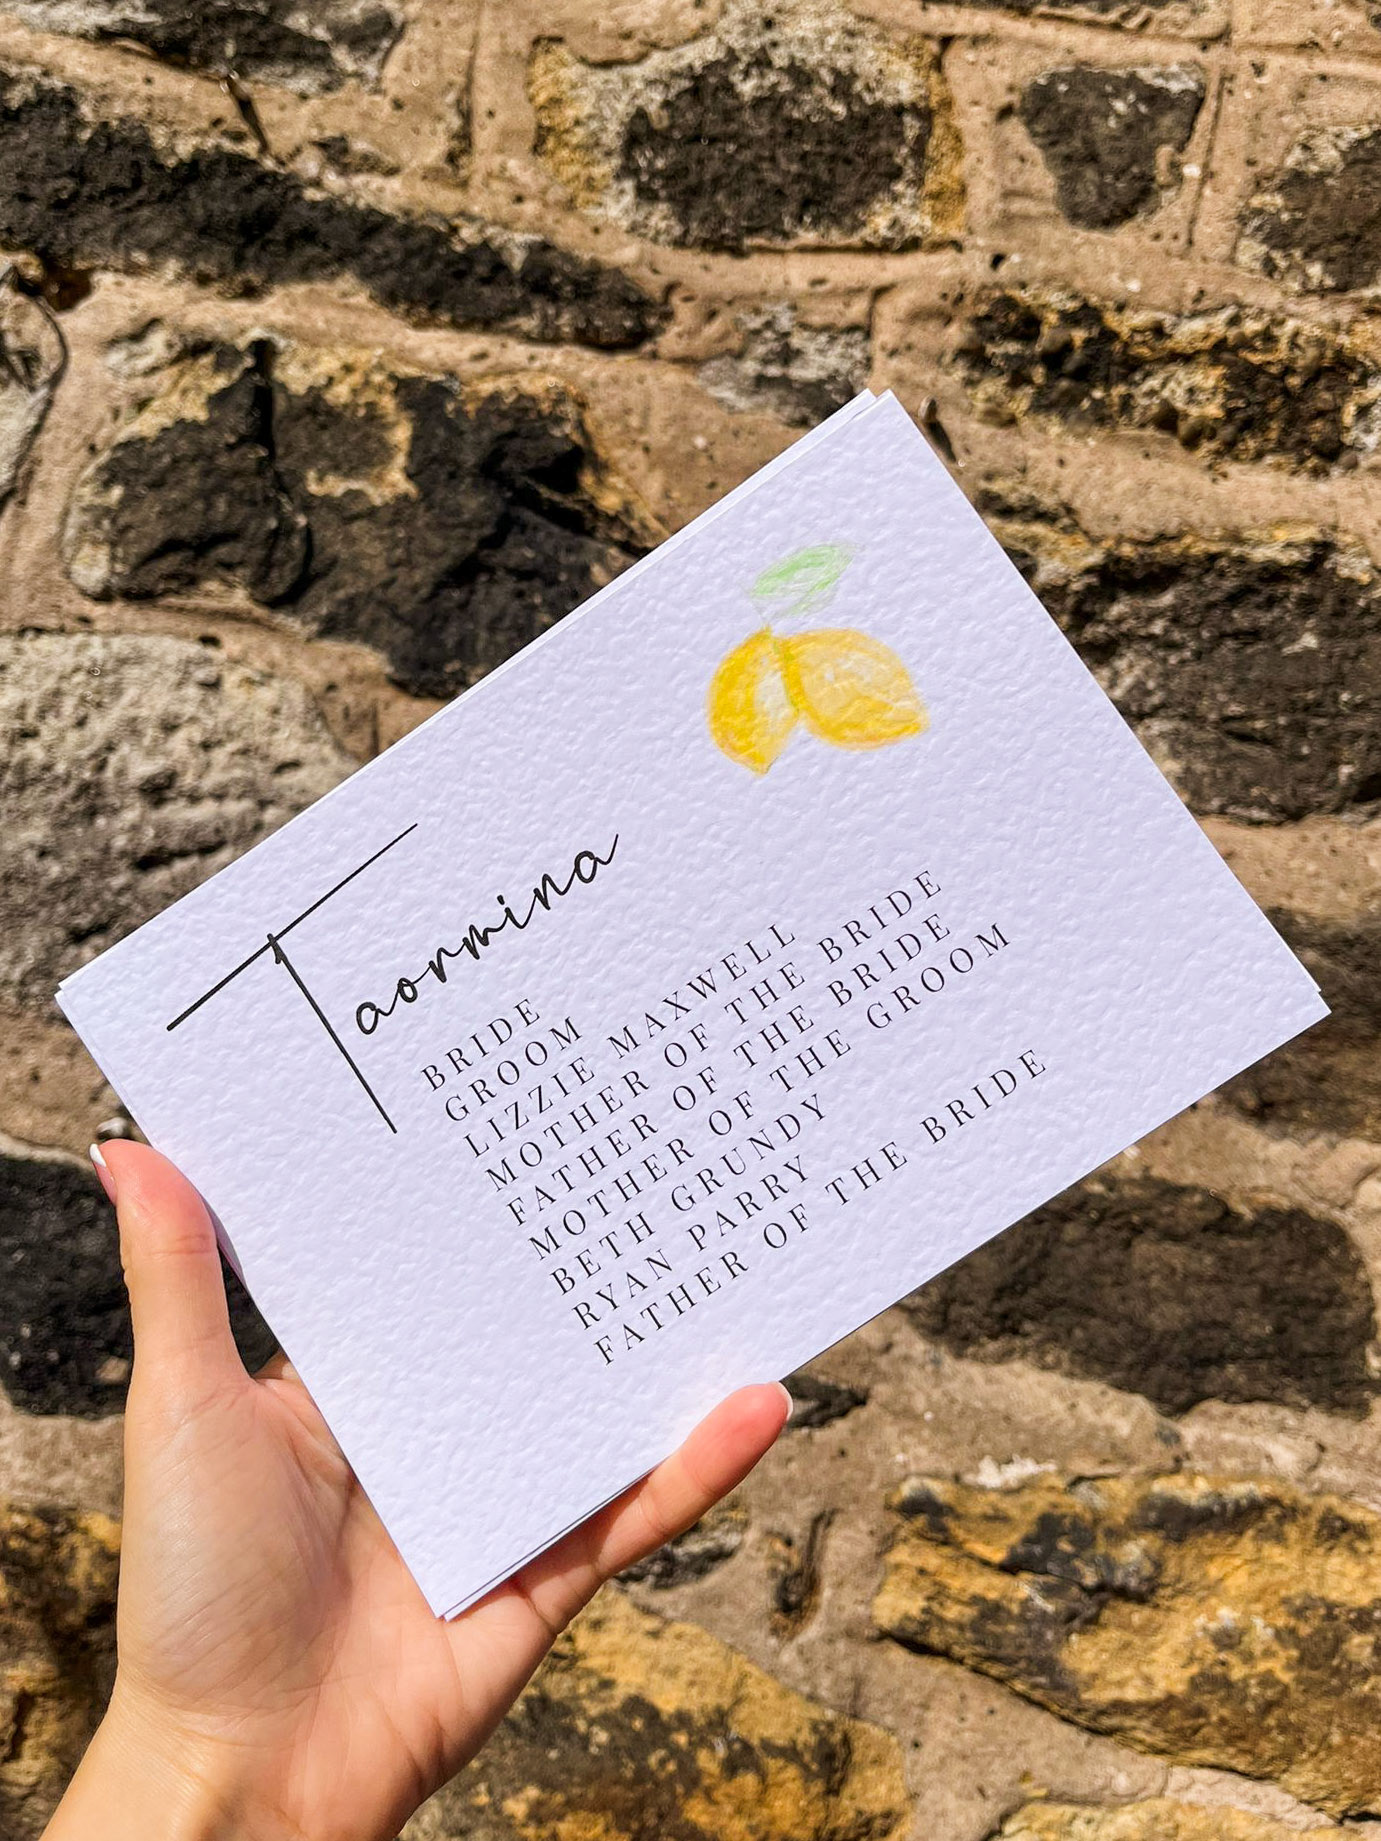 Taormina
BRIDE
GROOM
LIZZIE MAXWELL
MOTHER OF THE BRIDE
FATHER OF THE BRIDE
MOTHER OF THE GROOM
BETH GRUNDY
RYAN PARRY
FATHER OF THE BRIDE